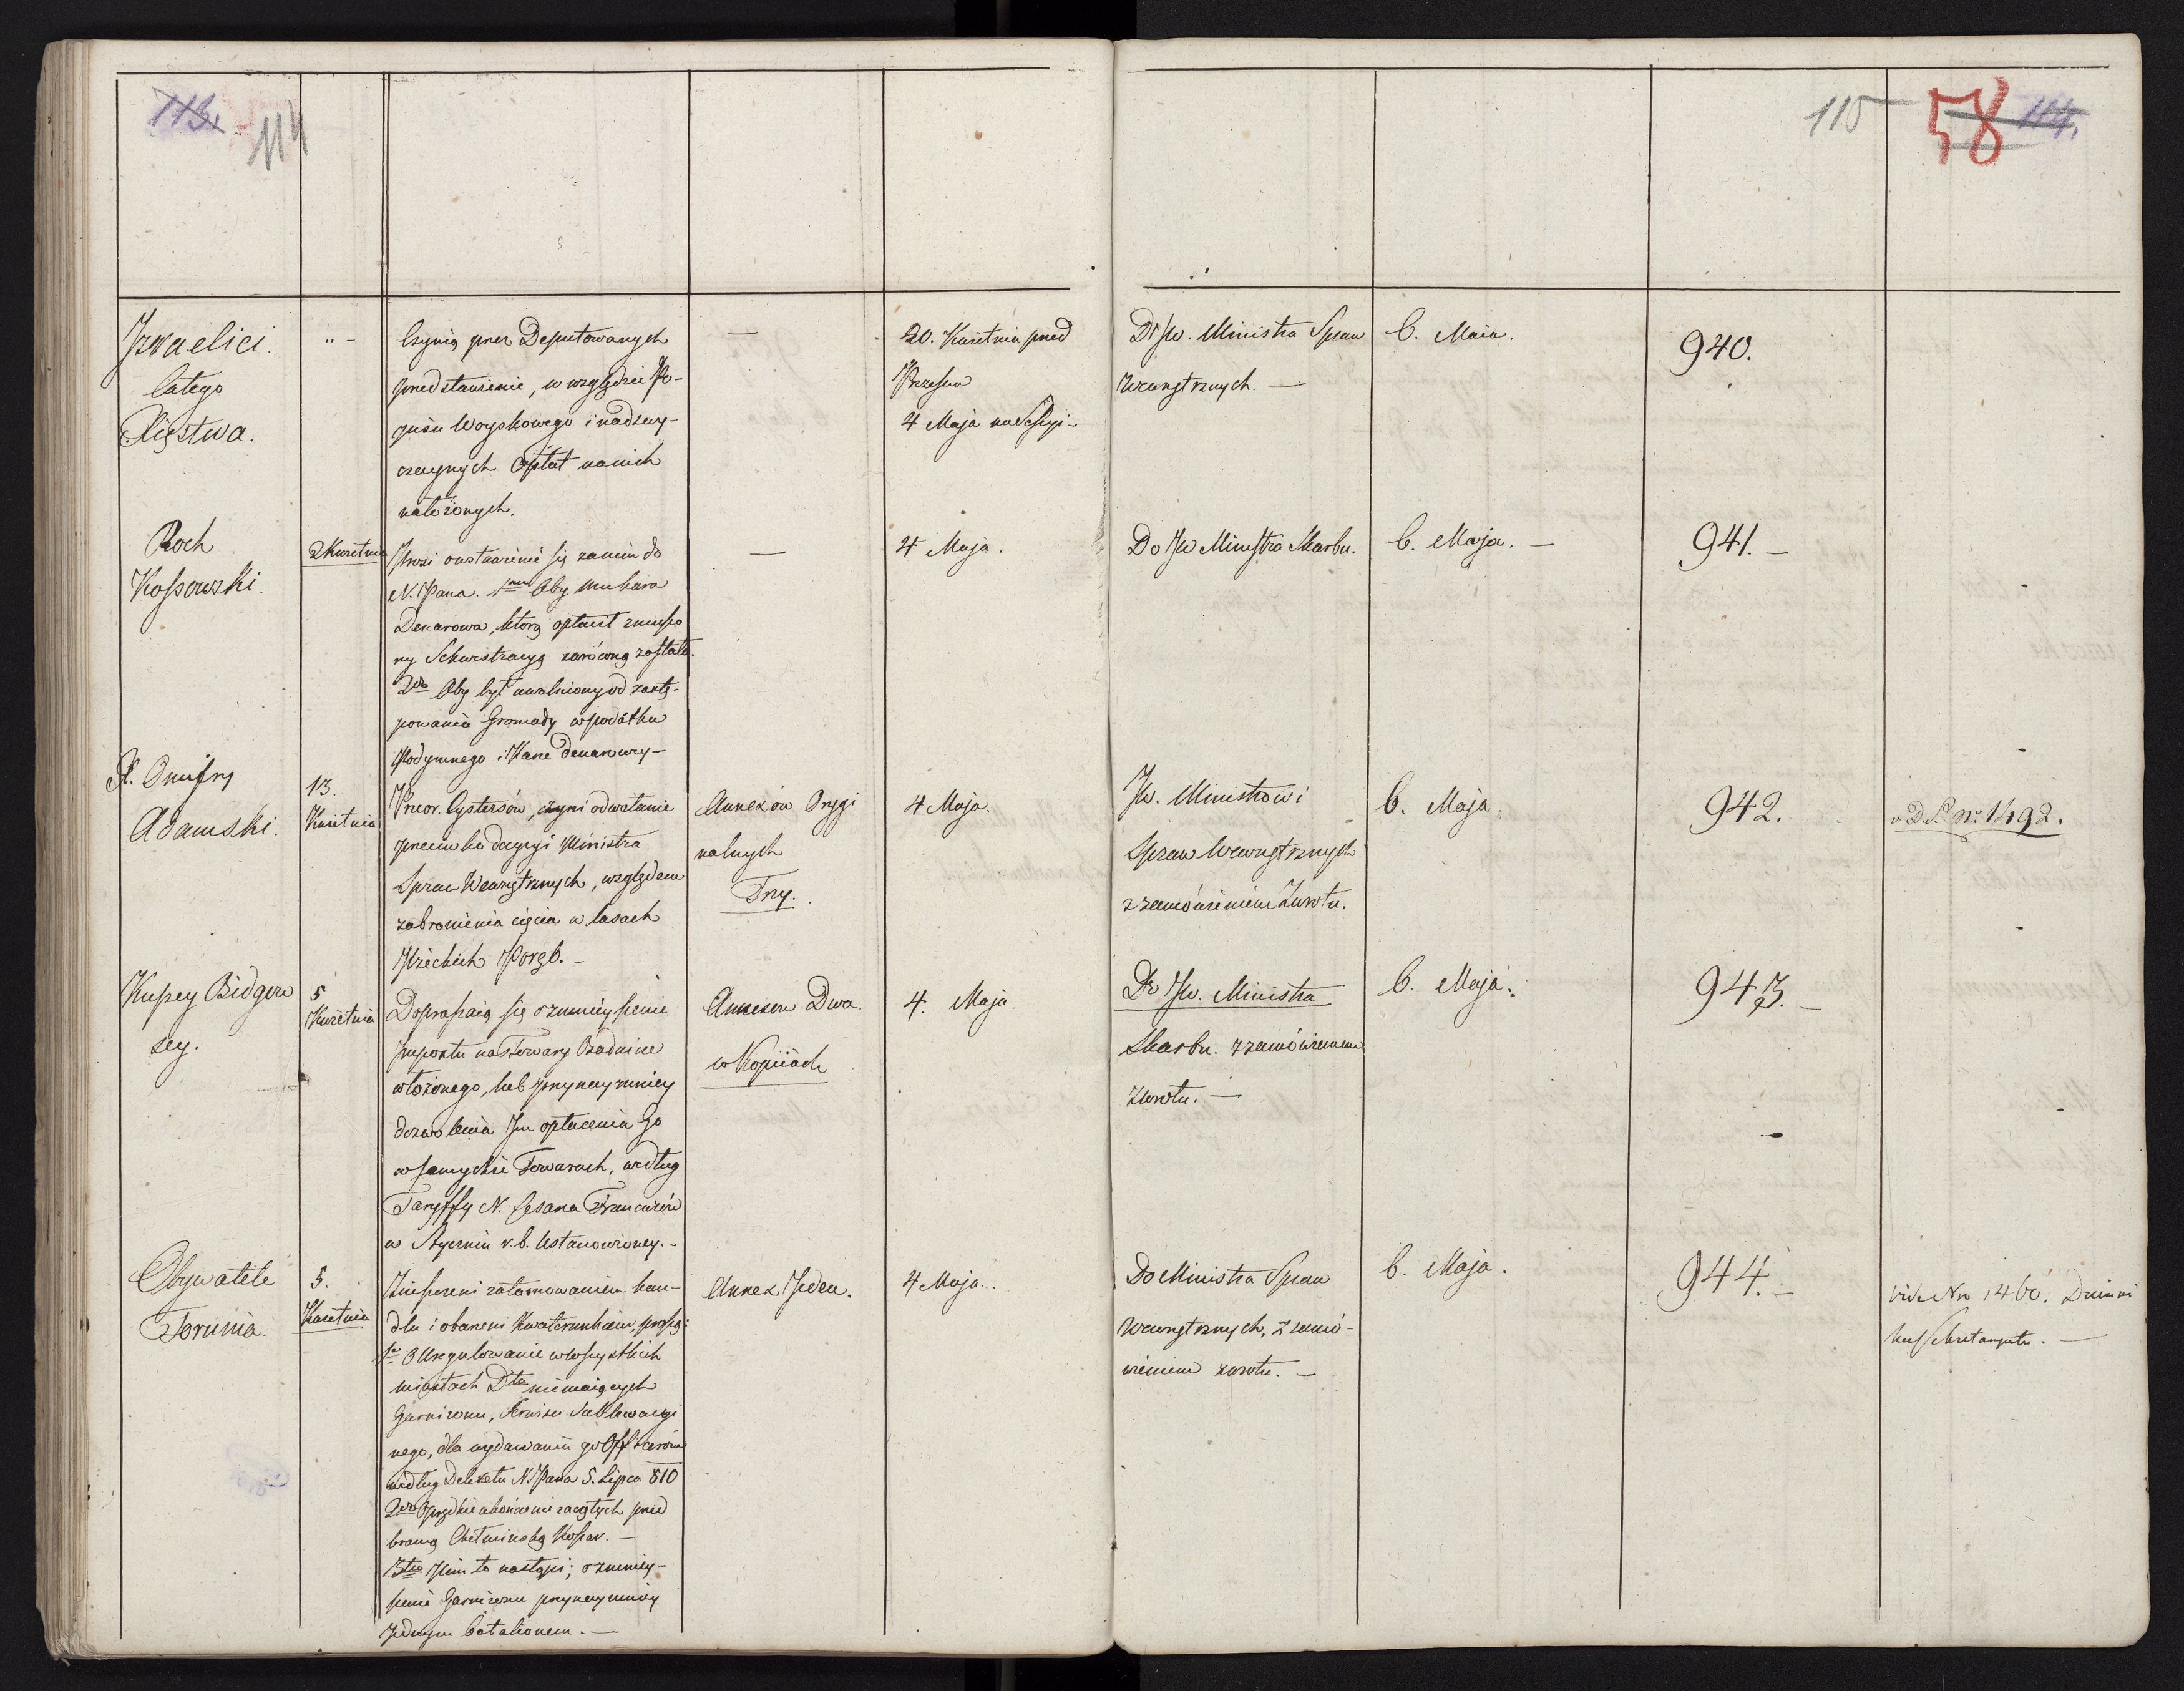 113.
114
115
58
114.
Izraelici
całego
Xięstwa.
" -
Czynią przez Deputowanych
przedstawienie, w względzie Po-
guśu Woyskowego i nadzwy-
czaynych Opłat na nich
nałożonych.
—
20. Kwietnia przed
Prezesem
4 Maja na Sessyi -
Do JW. Ministra Spraw
Wewnętrznych. —
6. Maia.
940.
Roch
Kossowski.
2 Kwietnia
Prosi o wstawienie się za nim do
N. Pana. 1mo Aby mu kara
Denarowa, którą opłacił
Sekwestracyą zwrócona została.
2do Aby był uwolniony od zastę-
powania Gromady w podatku
Podymnego i Karze denarowey -
—
4 Maja.
Do JW Ministra Skarbu.
6. Maja. —
941. —
X. Onufry
Adamski.
13.
Kwietnia
Przeor. Cystersów, czyni odwołanie
przeciwko decyzyi Ministra
Spraw Wewnętrznych, względem
zabronienia cięcia w lasach
Poręb. —
Annexów Orygi
nalnych
Trzy.
4 Maja.
JW. Ministrowi
Spraw Wewnętrznych
z zamówieniem Zwrotu.
6. Maja.
942.
v D. S. No 1492.
Kupcy Bidgow
scy.
5
Kwietnia
Dopraszaią się o zmnieyszenie
Impostu na Towary Osadnicze
włożonego, lub przynaymniey
dozwolenia Im opłacenia Go
w samychże Towarach, według
Taryffy N. Cesarza Francuzów
w Styczniu r. b. Ustanowioney. -
Annexów Dwa.
w Kopiiach
4. Maja.
Do JW. Ministra
Skarbu. z zamówieniem
Zwrotu. —
6. Maja.
943. —
Obywatele
Torunia.
5.
Kwietnia
Zniszczeni zatamowaniem han-
dlu i obarczeni Kwaterunkiem, proszą:
1o O Uregulowanie w wszystkich
miastach Dtu niemaiących
Garnizonu, Serwisu Sublewacyi
nego, dla wydawania go Officerom
według Dekretu N. Pana 5. Lipca 810
2do O prędkie ukończenie zaczętych przed
bramą Chełmińską Koszar. —
3tio Nim to nastąpi; o zmniey-
szenie Garnizonu przynaymniey
Jednym batalionem. —
Annex Jeden.
4 Maja.
Do Ministra Spraw
Wewnętrznych, z zamó-
wieniem zwrotu. —
6. Maja.
944. —
vide Nro 1460. Dzienni
ka Sekretaryatu. —